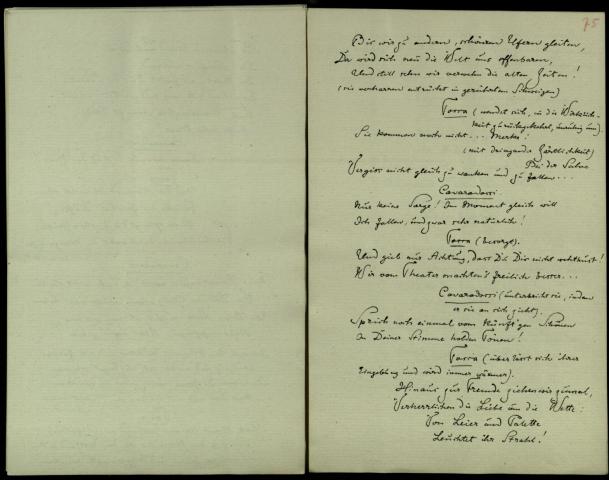 75
Bis wir zu andern, schönren Ufern gleiten,
Da wird sich neu die Welt uns offenbaren,
Und still sehn wir verwehn die alten Zeiten!
(sie verharren entrückt in gerührtem Schweigen)
Tosca (wendet sich, in die Wirklich-
keit zurückgekehrt, unruhig um)
Sie kommen noch nicht... Merke!
(mit dringender Zärtlichkeit)
Bei der Salve
Vergiss nicht gleich zu wanken und zu fallen...
Cavaradossi.
Nur keine Sorge! Im Moment gleich will
Ich fallen, und zwar sehr natürlich!
Tosca (besorgt).
Und gieb nur Achtung, dass Du Dir nicht wehthust!
Wir vom Theater machten's freilich besser...
Cavaradossi (unterbricht sie, indem
er sie an sich zieht).
Sprich noch einmal vom künft'gen Schönen
In Deiner Stimme holden Tönen!
Tosca (überlässt sich ihrer
Eingebung und wird immer wärmer).
Hinaus zur Fremde ziehen wir zumal,
Verherrlichen die Liebe um die Wette:
Von Leier und Palette
Leuchtet ihr Strahl!